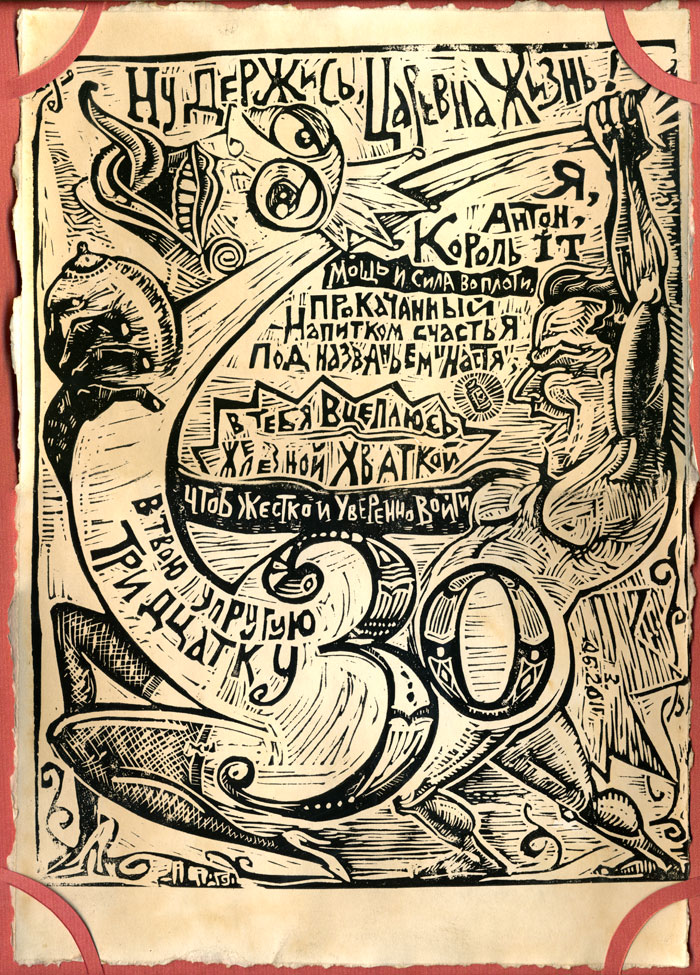 Ну держись, Царевна Жизнь!
Я,
Антон,
Король IT
Мощь и сила во плоти,
Прокачанный
Напитком счастья
Под названьем "Настя",
В тебя вцеплюсь
Железной хваткой
Чтоб жестко и уверенно войти
в твою упругую
Тридцатку
30